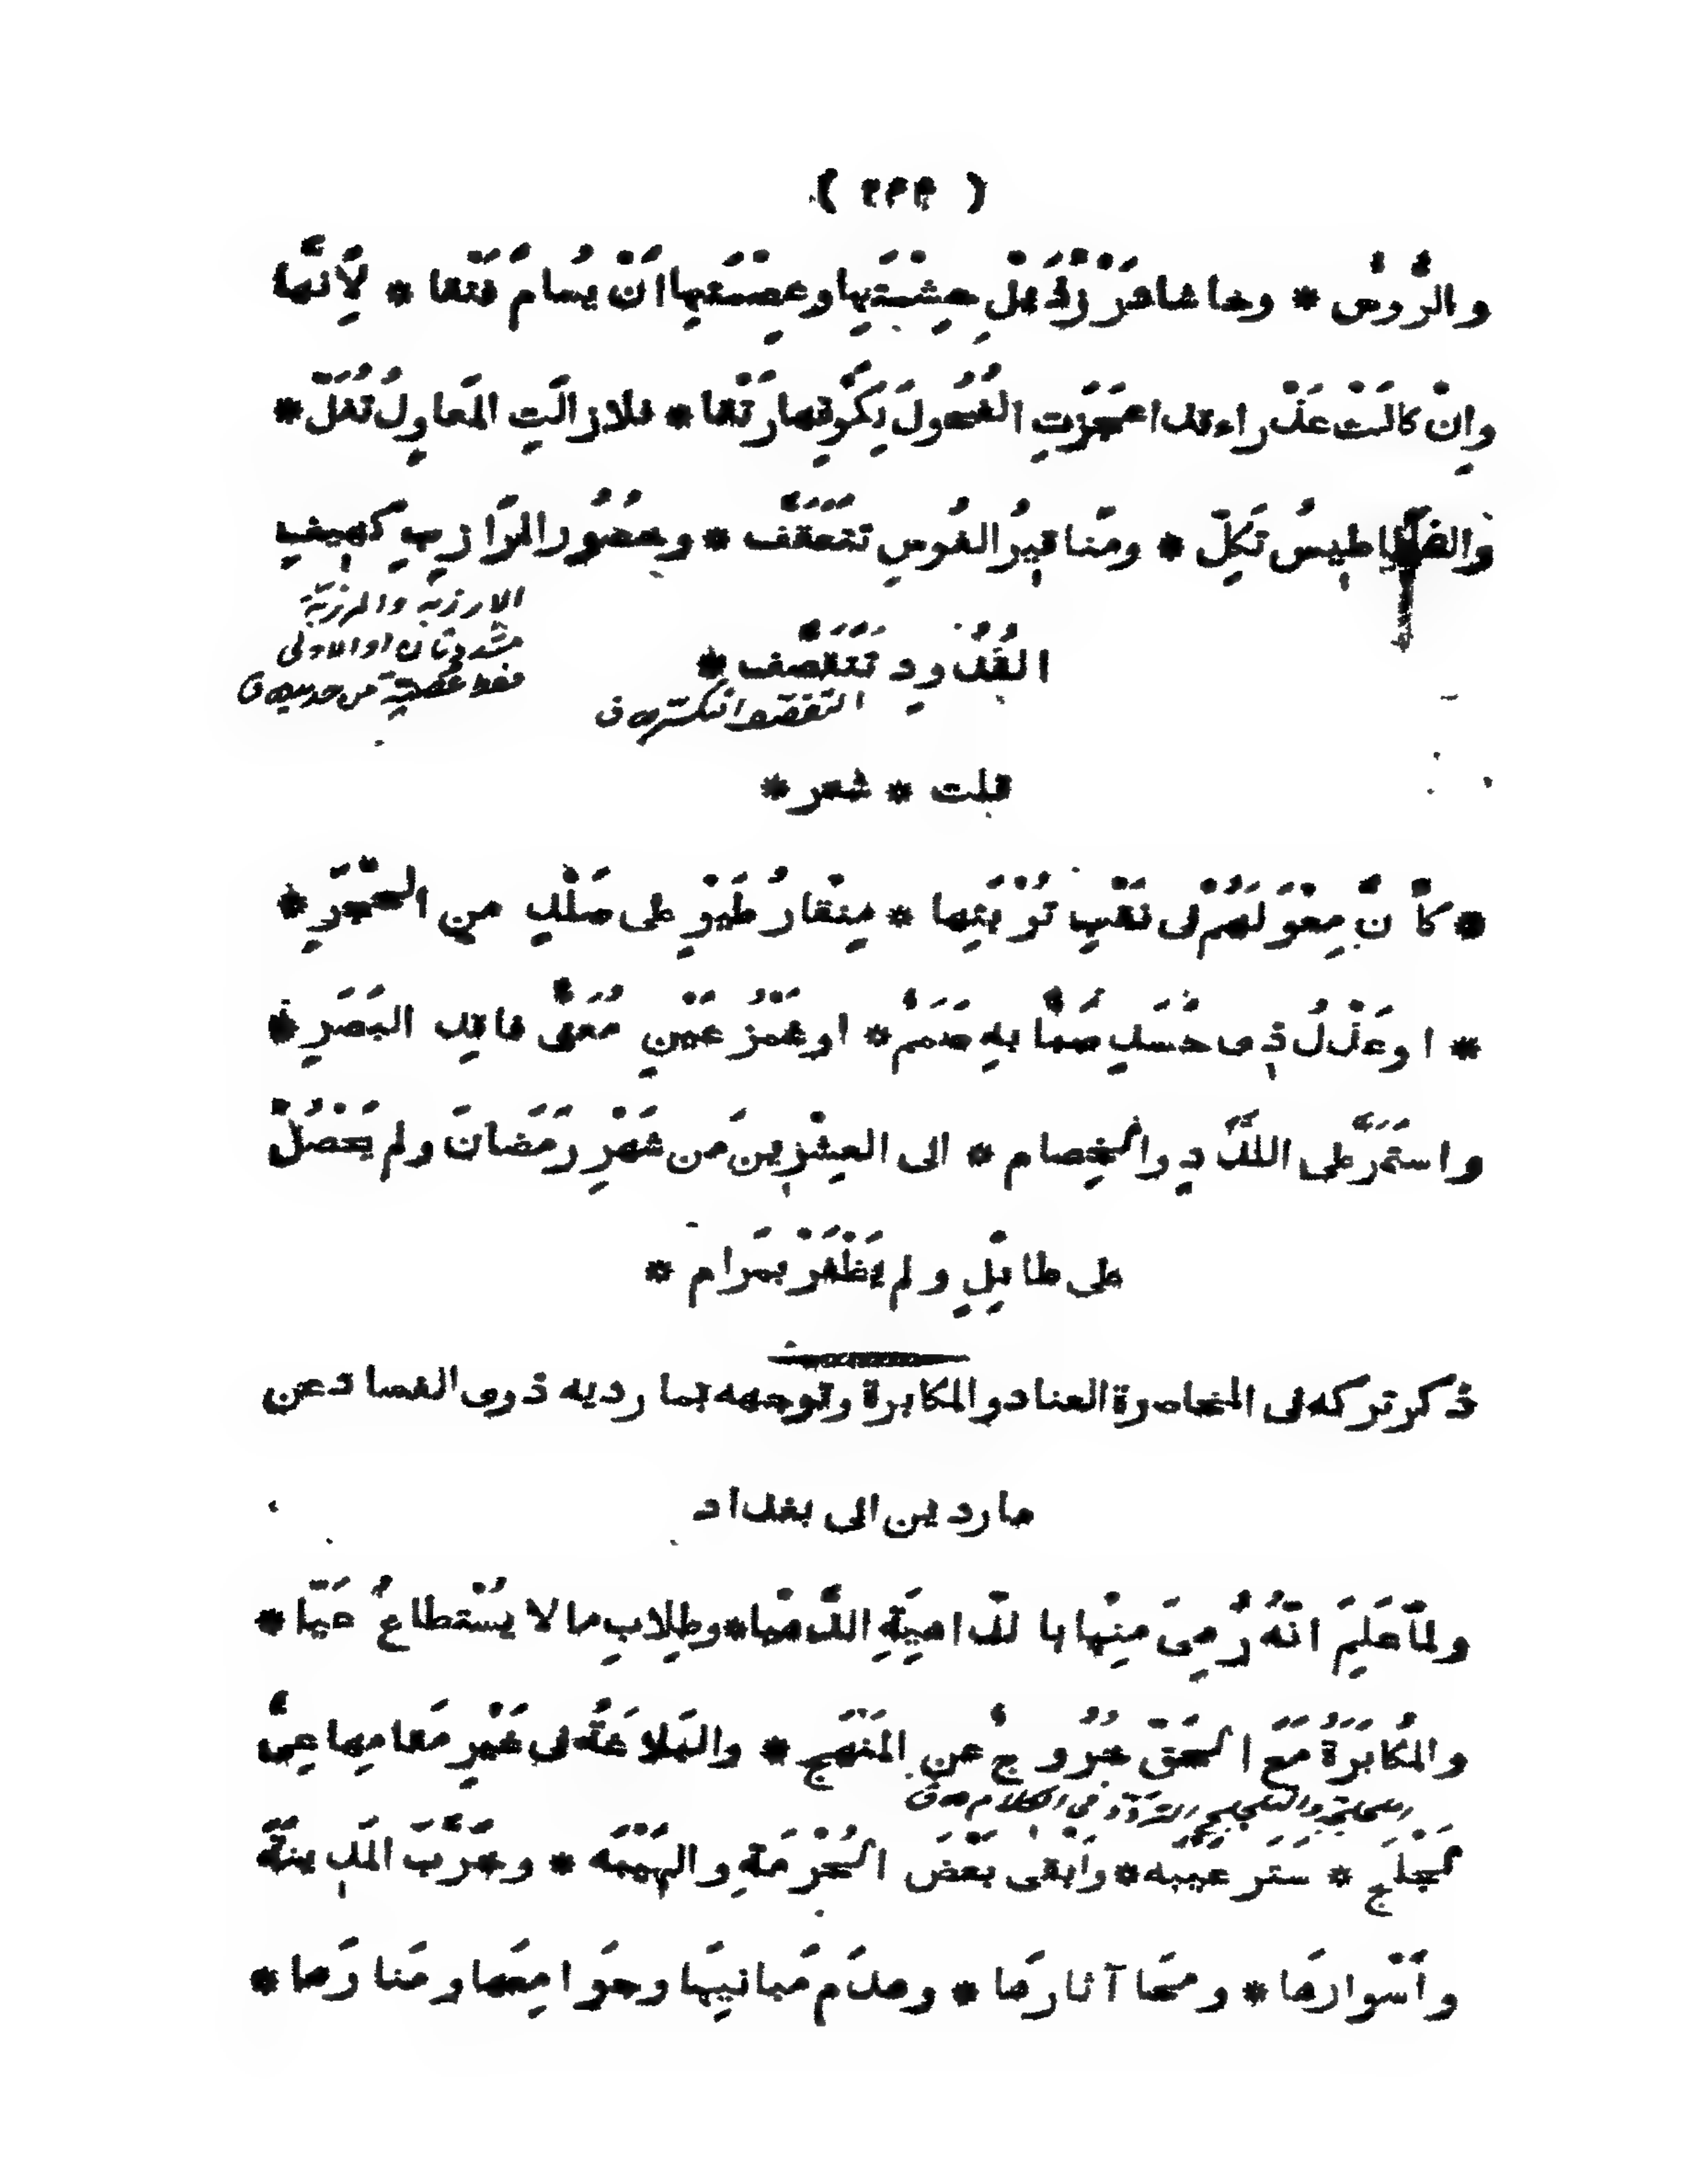 ( ٢٢٣ )
والرُّوسْ * وحاشا عرْزُ ذَيْلِ حِشْمَتِها وعِصْمَتِها اَنْ يُسامَ فَتْقا * لِاَنَّها
واِنْ كانَتْ عَذْراء قد اعجَزَتِ الفُحُولَ بِكَوْنِها رَتْقا * فلازالَتِ المَعاوِلُ تُفَلّ *
والفَطاطِيسُ تَكِلّ * ومَناقيرُ الفُوسِ تَتَعَقَّف * وخُصُور المَرازِبِ كهيفِ
القُدُودِ تَتَقَصَّف *
الارزبة والمرزبة
مشددتان او الاولى
فقط عُصَيّة من حديد ق
التقصف انكسر ق
قلت * شعر *
* كاَنَّ مِعْوَلَهُمْ فى نَقْبِ تُرْبَتِها * مِنْقارُ طَيْرٍ على صَلْدٍ من الحَجَرِ *
* اوعَذْلُ ذِى حَسَدٍ صَبًّا بهِ صَمَمٌ * اوغَمْزُ عَيْنٍ مُعَنًّى فاقِدِ البَصَرِ *
واستَمَرَّ على اللَّدَدِ والخِصام * الى العِشْرِينَ من شَهْرِ رَمَضانَ ولم يَحْصُلْ
على طايِلٍ ولم يَظْفَرْ بمَرام *
ذكر تركه فى المحاصرة العناد والمكابرة وتوجهه بما رديه ذوى الفساد عن
ماردين الى بغداد
ولمّا عَلِمَ انّهُ رُمِىَ مِنْها بالدّاهِيَةِ الدَّهْيا * وطِلابِ ما لا يُسْتطاعُ عَيّا *
والمُكابَرَةُ مَعَ الحَقّ خُرُوجٌ عنِ المَنْهَج * والبَلاغَةُ فى غَيْرِ مَقامِها عِىٌّ
والتلجلج التردد فى الكلام ق
لَجْلَج * سَتَر عيبه * وابْقى بَعْضَ الحُرْمَةِ والهَيْبَه * وخَرَّبَ المَدِينَةَ
واَسْوارَها * ومَحَا آثارَها * وهدَم مَبانيها وجوامِعَها ومَنارَها *